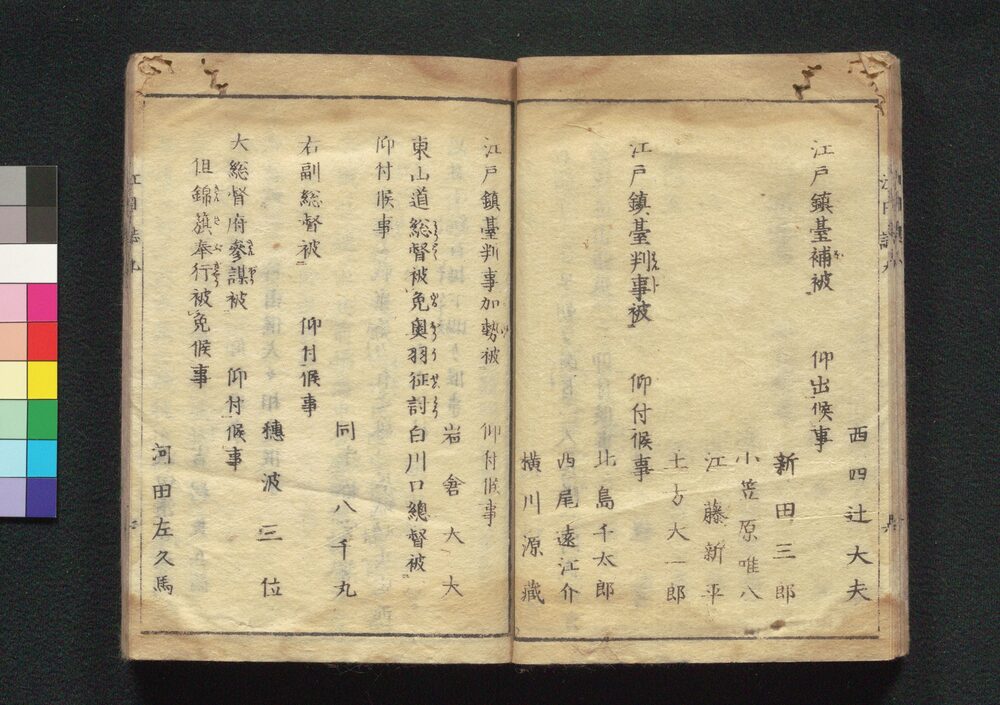 西四辻大夫
江戸鎮臺補被　仰出候事
新田三郎
小笠原唯八
江藤新平
土方大一郎
江戸鎮臺判事被　仰付候事
北島千太郎
西尾遠江介
横川源蔵
江戸鎮臺判事加勢被　仰付候事
岩倉大夫
東山道総督被免奥羽征討白川口總督被
仰付候事
同八千丸
右副総督被　仰付候事
穂波三位
大総督府参謀被　仰付候事
但錦旗奉行被免候事
河田左久馬